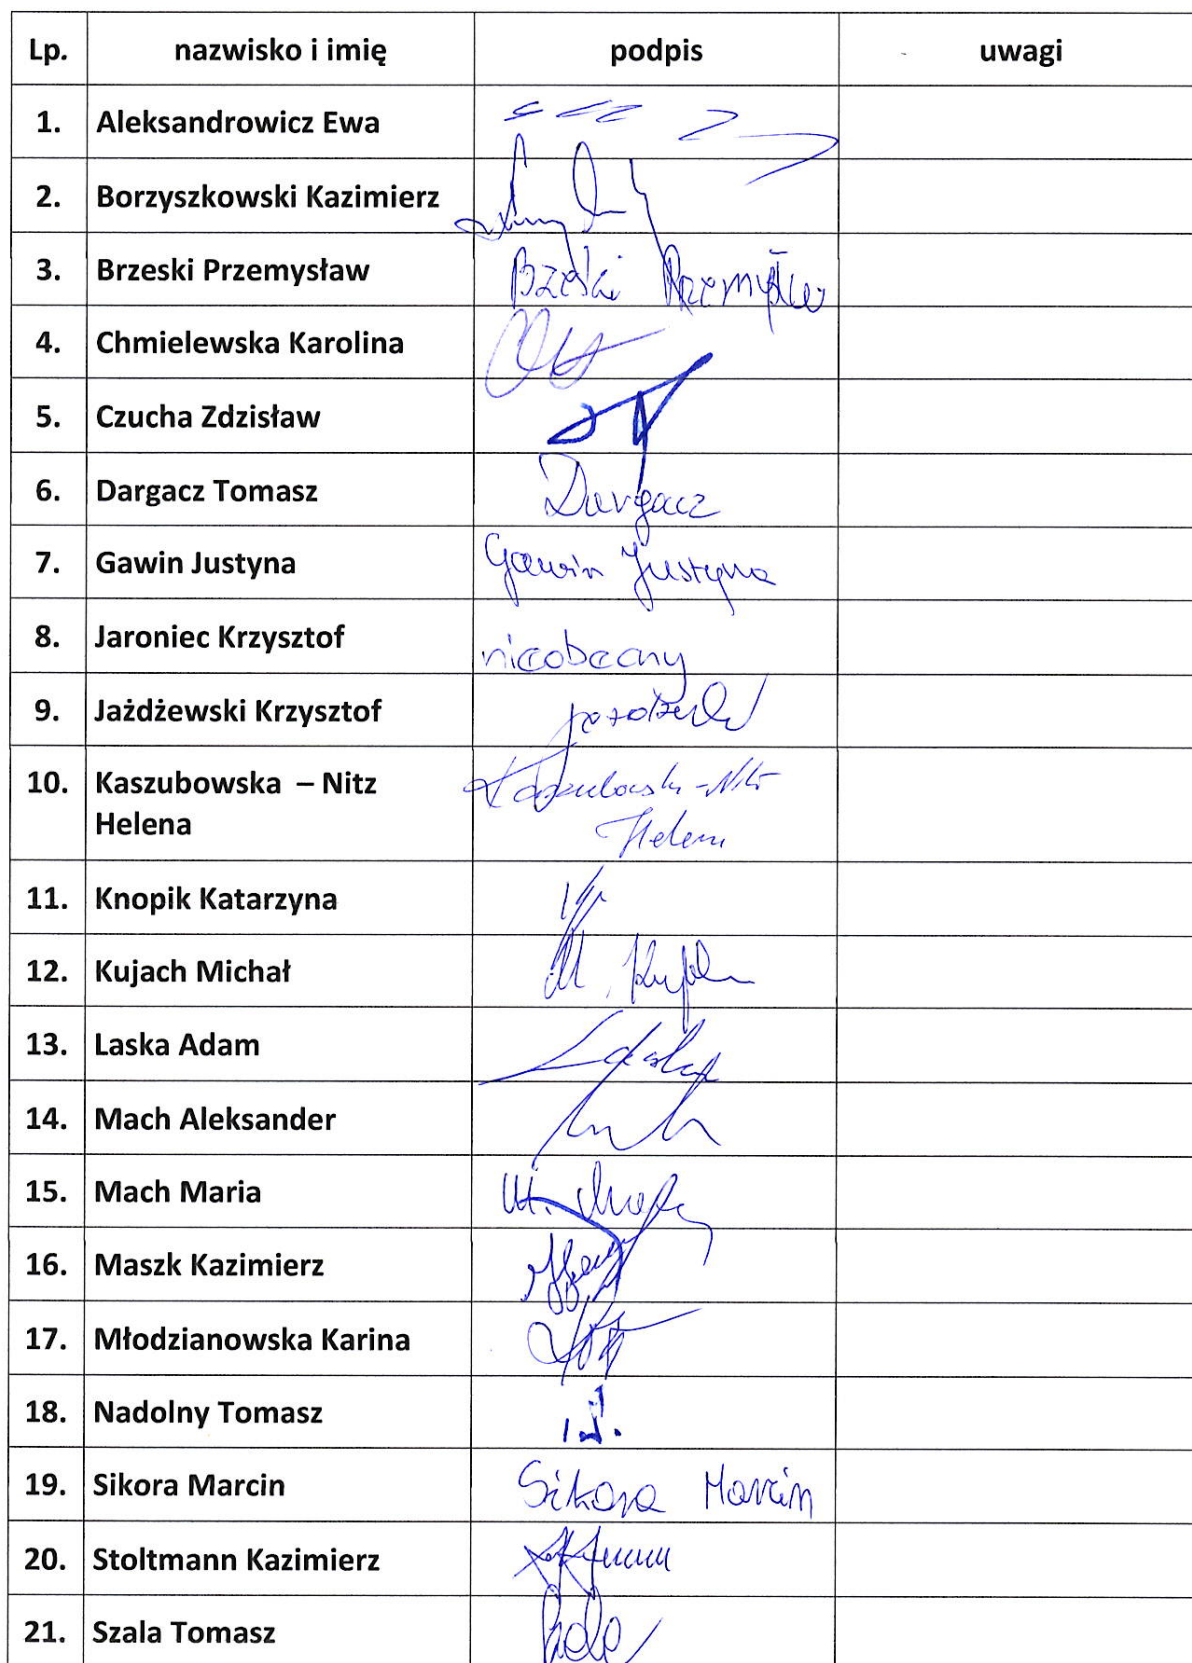 Lp. nazwisko i imię podpis uwagi
1. Aleksandrowicz Ewa
2. Borzyszkowski Kazimierz
3. Brzeski Przemysław Brzeski Przemysław
4. Chmielewska Karolina
5. Czucha Zdzisław
6. Dargacz Tomasz Dargacz
7. Gawin Justyna Gawin Justyna
8. Jaroniec Krzysztof nieobecny
9. Jażdżewski Krzysztof
10. Kaszubowska – Nitz Kaszubowska - Nitz
Helena Helena
11. Knopik Katarzyna
12. Kujach Michał M.
13. Laska Adam Laska
14. Mach Aleksander
15. Mach Maria M. Mach
16. Maszk Kazimierz
17. Młodzianowska Karina
18. Nadolny Tomasz
19. Sikora Marcin Sikora Marcin
20. Stoltmann Kazimierz
21. Szala Tomasz